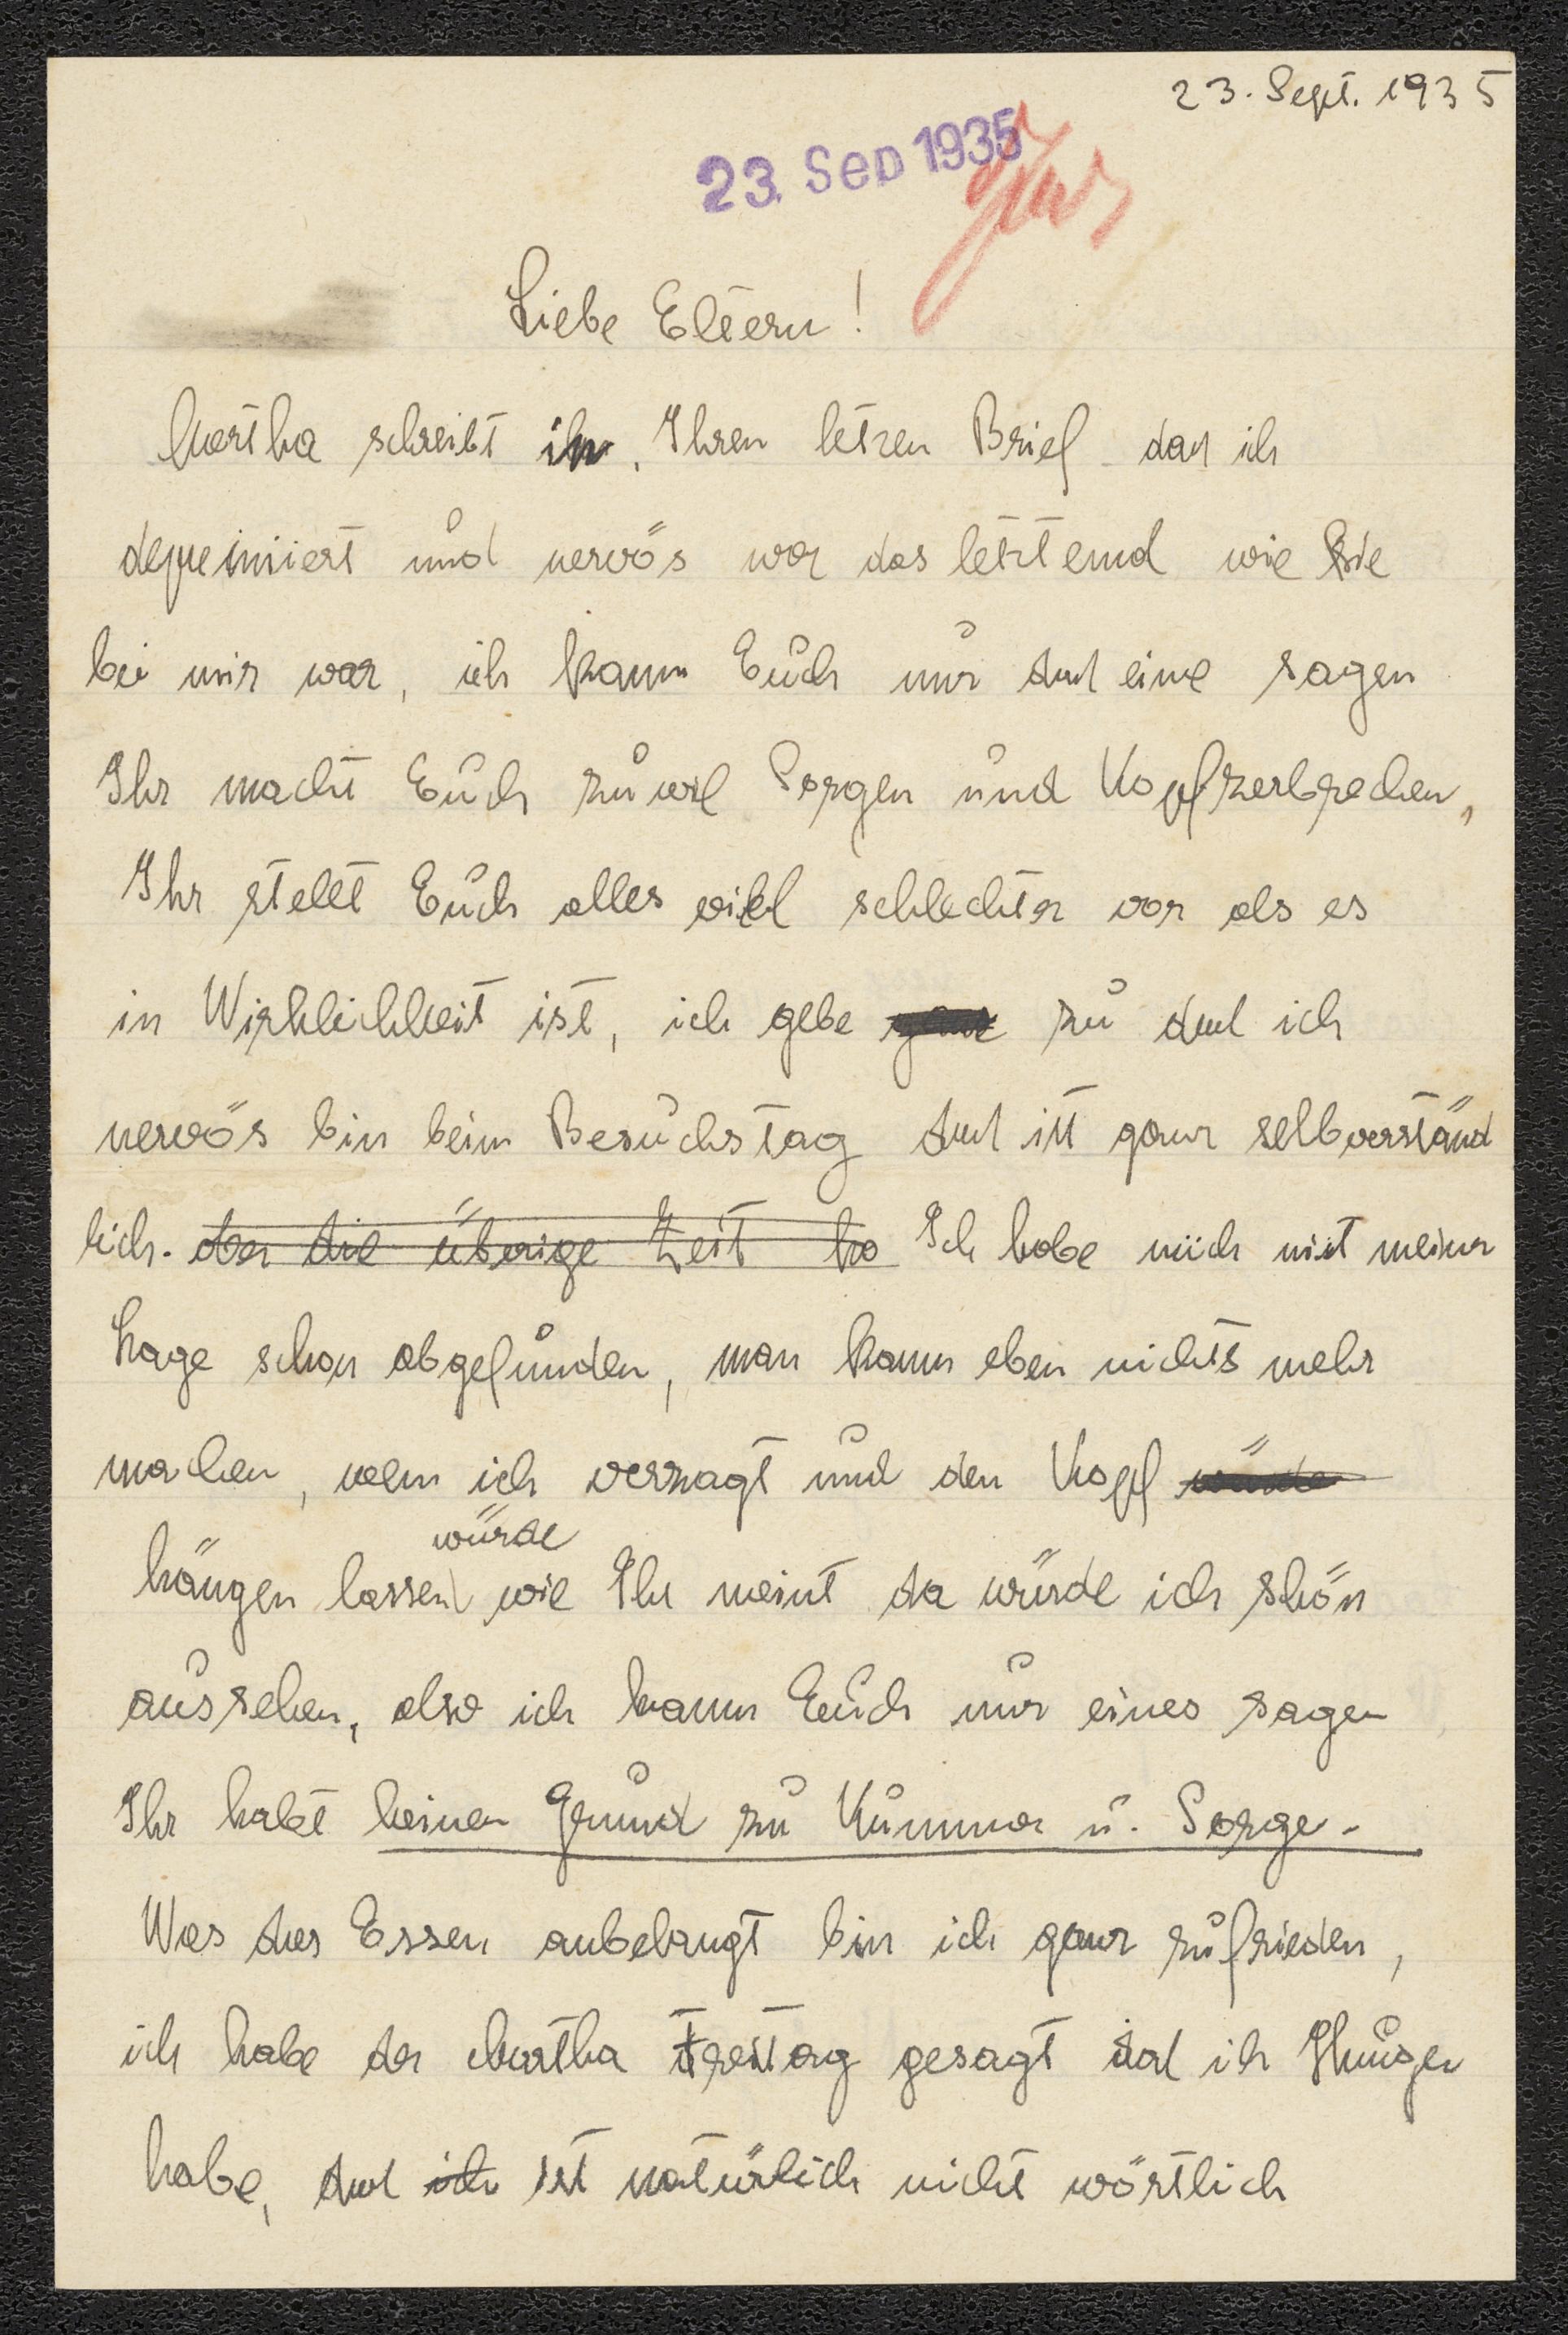 23. Sept. 1935
23. Sep 1935
Liebe Eltern!
Martha schreibt in, Ihren letzen Brief das ich
deprimiert und nervös war das letztemal wie Sie
bei mir war, ich kann Euch nur das eine sagen
Ihr macht Euch zuvil Sorgen und Kopfzerbrechen,
Ihr stellt Euch alles viel schlechter vor als es
in Wirklichkeit ist, ich gebe zu das ich
nervös bin beim Besuchstag das ist ganz selbverständ
lich. aber die übrige Zeit ha Ich habe mich mit meiner
Lage schon abgefunden, man kann eben nichts mehr
machen, wenn ich verzagt und den Kopf würde
würde
hängen lassen wie Ihr meint da würde ich shön
aussehen, also ich kann Euch nur eines sagen
Ihr habt keinen Grund zu Kummer u. Sorge.
Was das Essen anbelangt bin ich ganz zufrieden,
ich habe der Martha Freitag gesagt das ich Hunger
habe, das ich ist natürlich nicht wörtlich